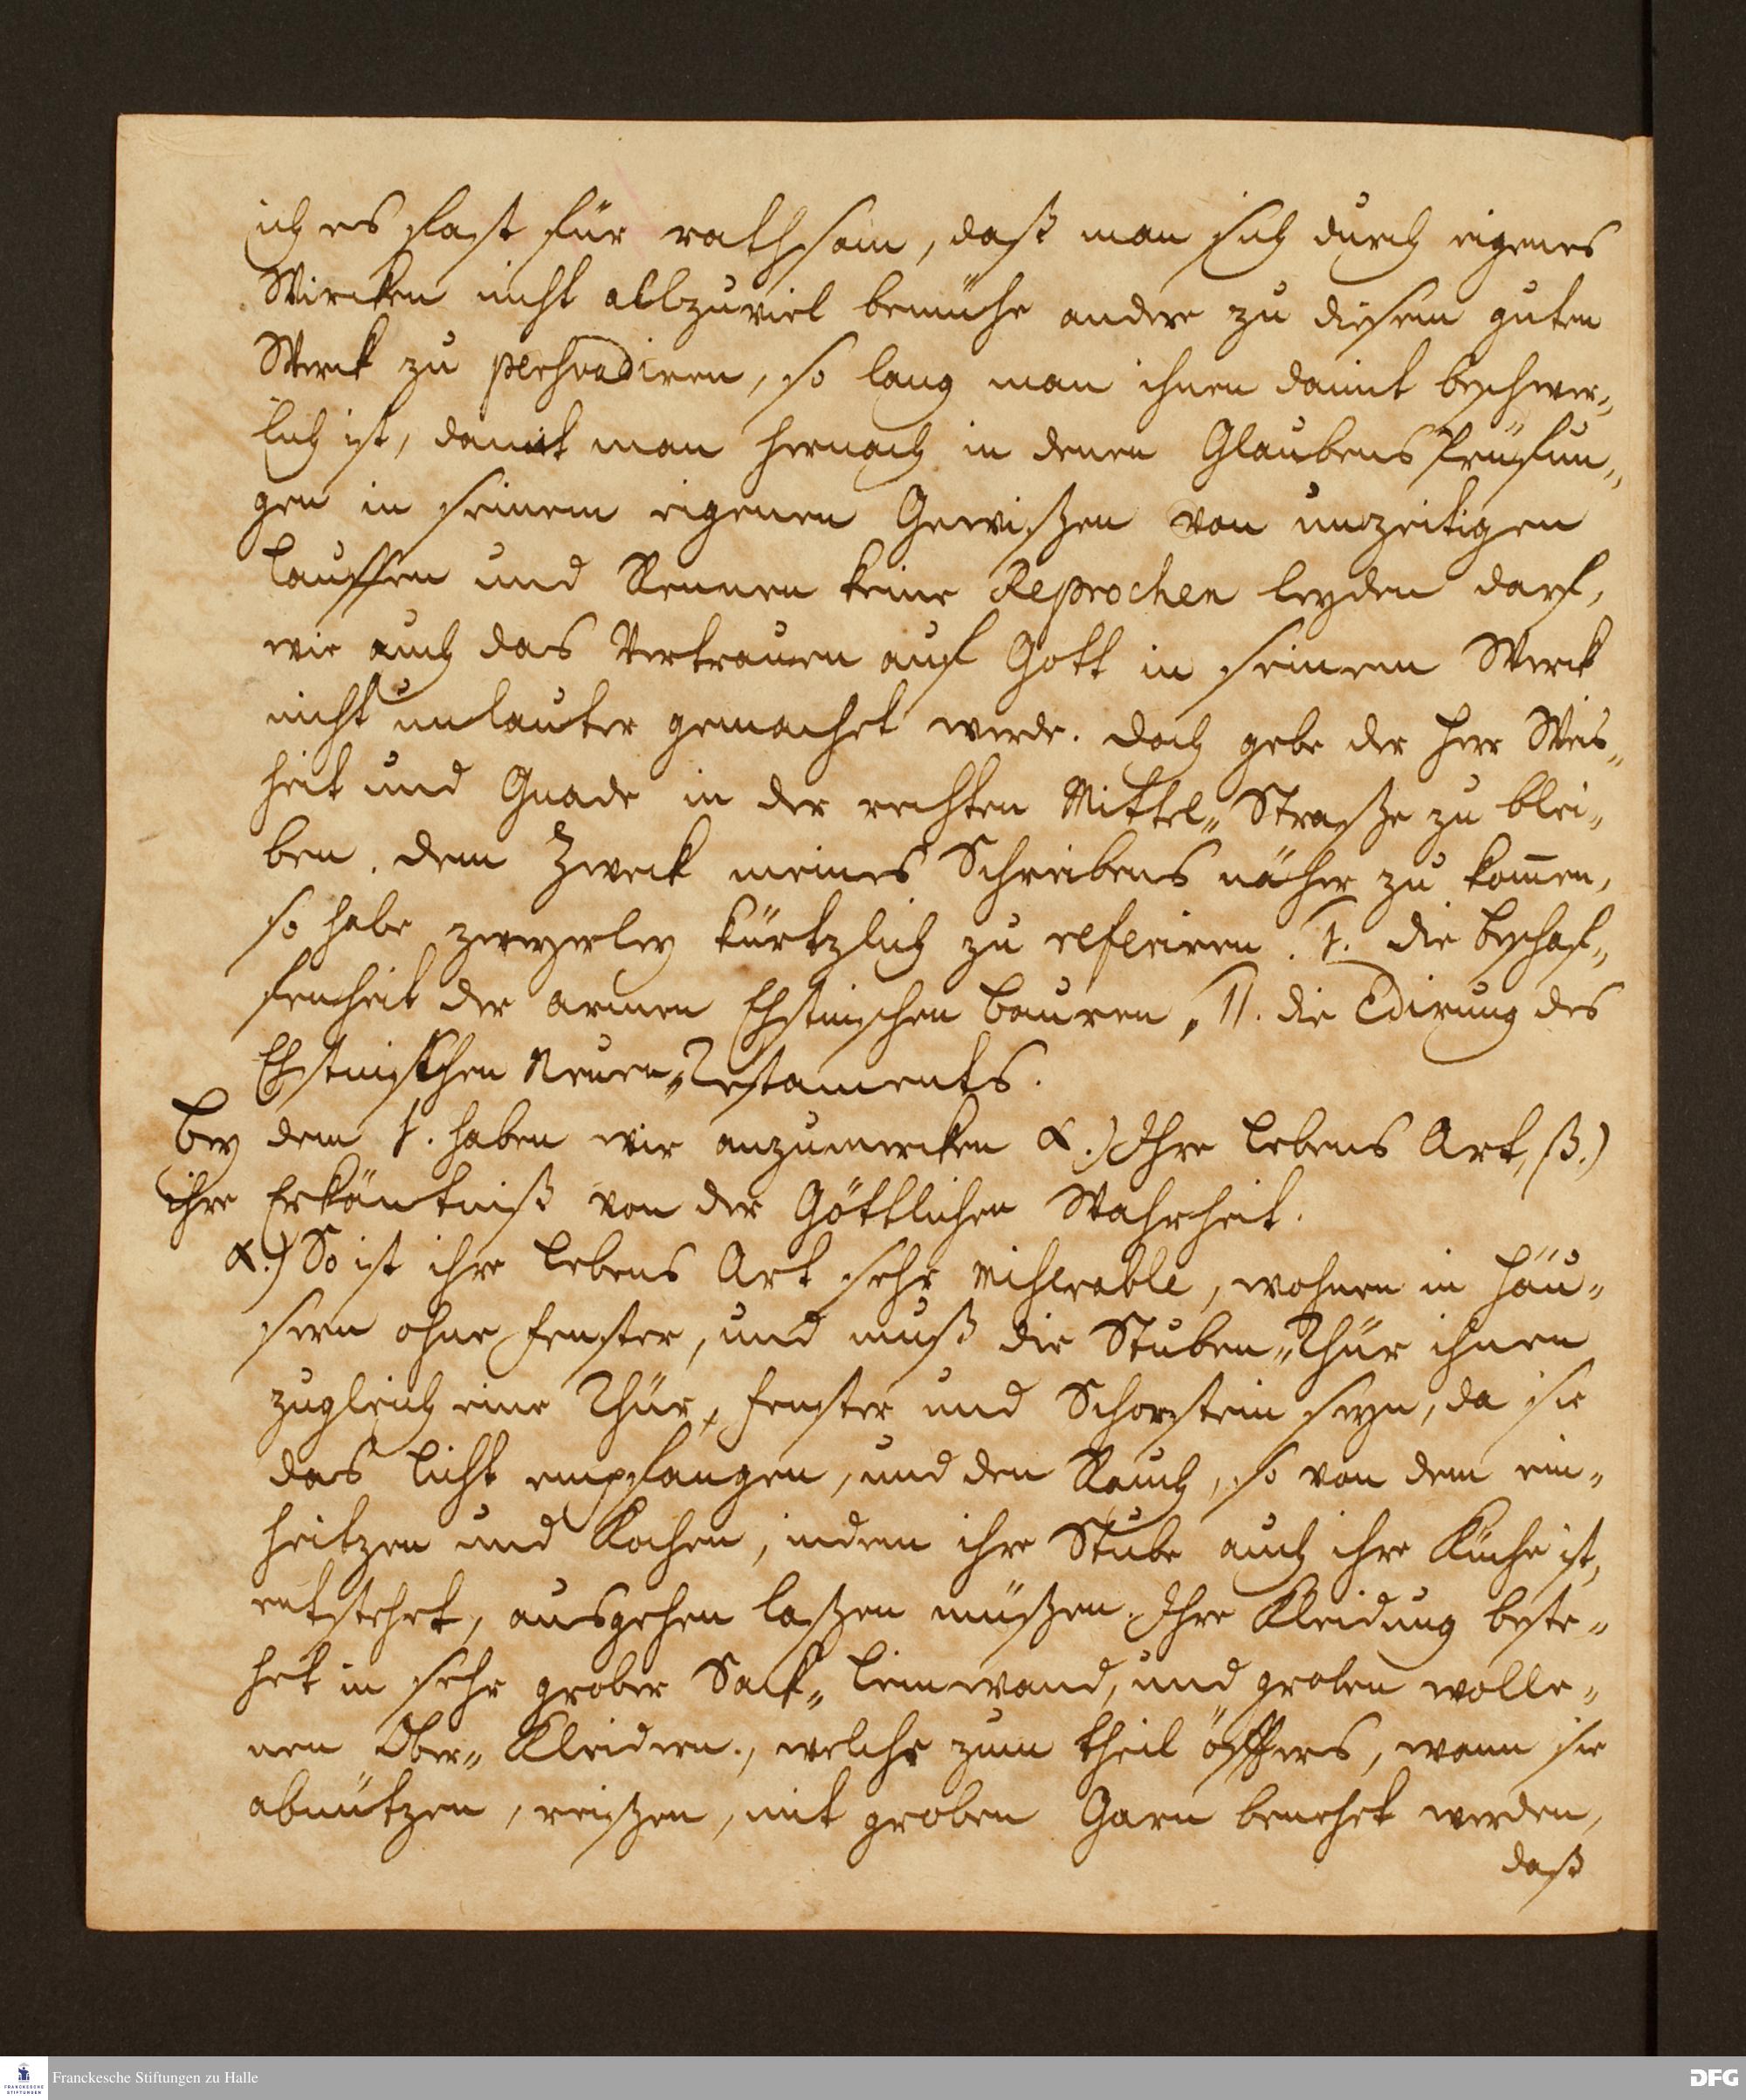 ich es fast für rathsam, daß man sich durch eigenes
Wircken nicht allzuviel bemühe andere zu diesem guten
Werck zu persuadiren, so lang man ihnen damit beschwer„
lich ist, damit man hernach in denen Glaubens Prüfun„
gen in seinem eigenen Gewißen von unzeitigen
Lauffen und Rennen keine Reprochen leyden darf,
wie auch das Vertrauen auf Gott in seinem Werck
nicht unlauter gemachet werde. Doch gebe der Herr Weis„
heit und Gnade in der rechten Mittel„Straße zu blei„
ben. Dem Zweck meines Schreibens näher zu kom̄en,
so habe zweyerley kürtzlich zu referiren. I. die Beschaf„
fenheit der armen Ehstnischen Bauren, II. die Edirung des
Ehstnischen Neuen„Testaments.
Bey dem I. haben wir anzumercken α.) Ihre Lebens Art, β.)
ihre Erkäntniß von der Göttlichen Wahrheit.
α.) So ist ihre Lebens Art sehr miserable, wohnen in Häu„
sern ohne Fenster, und muß die Stuben„Thür ihnen
zugleich eine Thür, Fenster und Schorstein seyn, da sie
das Licht empfangen, und den Rauch, so von dem ein„
heitzen und Kochen, indem ihre Stube auch ihre Küche ist,
entstehet, ausgehen laßen müßen. Ihre Kleidung beste„
het in sehr grober Sack„ Leinwand, und groben wolle„
nen Ober„ Kleidern, welche zum theil öffters, wann sie
abnützen, reißen, mit groben Garn benehet werden,
daß
Franckesche Stiftungen zu Halle
FRANCKESCHE
STIFTUNGEN
DFG